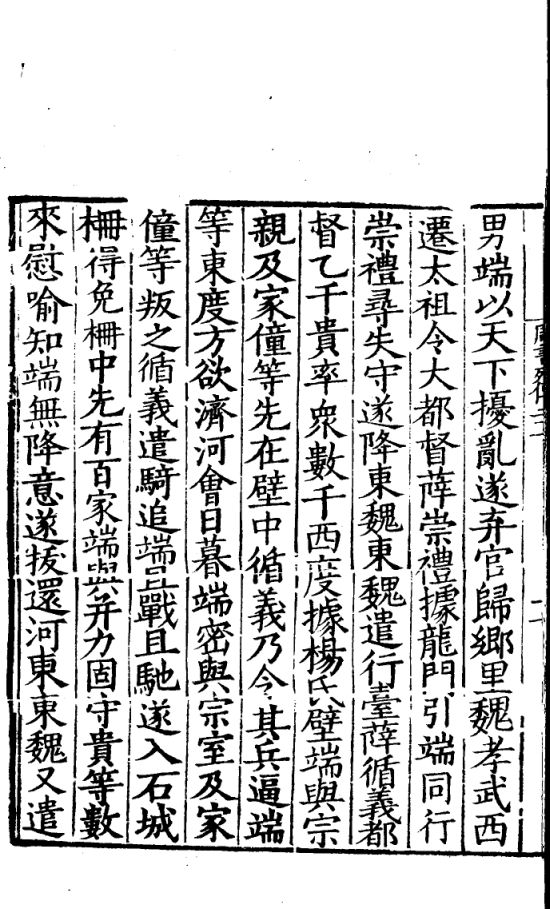 男端以天下擾亂遂弃官歸鄉里魏孝武西
遷太祖令大都督薛崇禮據龍門引端同行
崇禮尋失守遂降東魏東魏遣行臺薛循義都
督乙千貴率衆數千西度據楊氏壁端與宗
親及家僮等先在壁中循義乃令其兵逼端
等東度方欲濟河會日暮端密與宗室及家
僮等叛之循義遣騎追端且戰且馳遂入石城
柵得免柵中先有百家端與并力固守貴等數
來慰喻知端無降意遂拔還河東東魏又遣